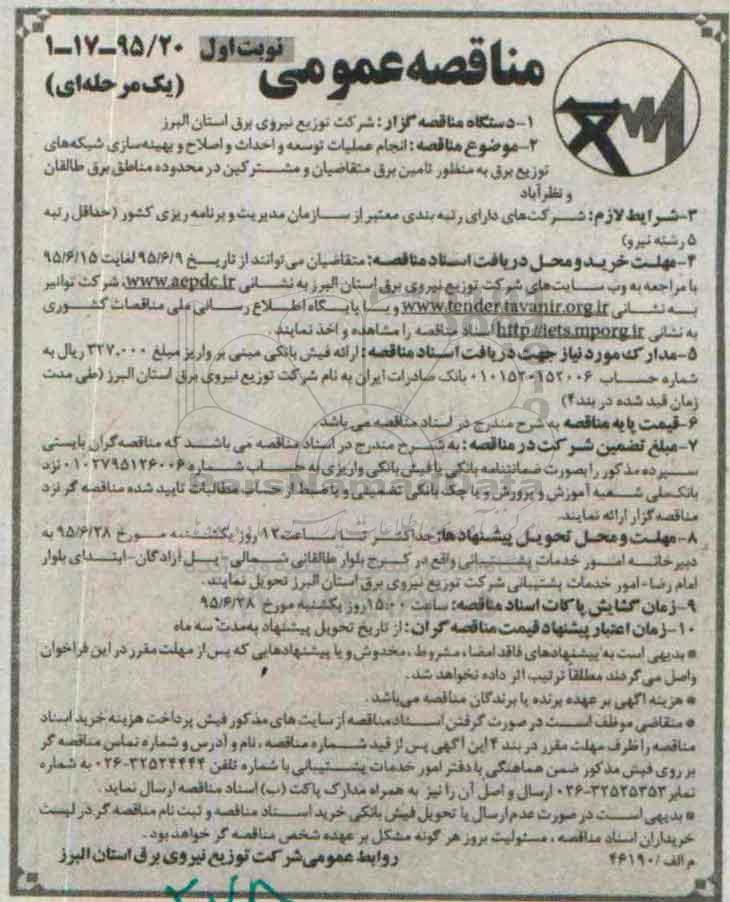 مناقصه عمومی
نوبت اول
۱-۱۷-۹۵/۲۰
(یک مرحله‌ای)
۱-دستگاه مناقصه گزار: شرکت توزیع نیروی برق استان البرز
۲-موضوع مناقصه: انجام عملیات توسعه و احداث و اصلاح و بهینه‌سازی شبکه‌های
توزیع برق به منظور تامین برق متقاضیان و مشترکین در محدوده مناطق برق طالقان
و نظرآباد
۳-شرایط لازم: شرکت‌های دارای رتبه بندی معتبر از سازمان مدیریت و برنامه ریزی کشور (حداقل رتبه
۵ رشته نیرو)
۴-مهلت خرید و محل دریافت اسناد مناقصه: متقاضیان می‌توانند از تاریخ ۹۵/۶/۹ لغایت ۹۵/۶/۱۵
با مراجعه به وب سایت‌های شرکت توزیع نیروی برق استان البرز به نشانی www.aepdc.ir، شرکت توانیر
به نشانی www.tender.tavanir.org.ir و یا پایگاه اطلاع رسانی ملی مناقصات کشوری
به نشانی http://iets.mporg.ir اسناد مناقصه را مشاهده و اخذ نمایند.
۵-مدارک مورد نیاز جهت دریافت اسناد مناقصه: ارائه فیش بانکی مبنی بر واریز مبلغ ۳۲۷.۰۰۰ ریال به
شماره حساب ۰۱۰۱۵۲۰۱۵۲۰۰۶ بانک صادرات ایران به نام شرکت توزیع نیروی برق استان البرز (طی مدت
زمان قید شده در بند۴)
۶-قیمت پایه مناقصه به شرح مندرج در اسناد مناقصه می باشد.
۷-مبلغ تضمین شرکت در مناقصه: به شرح مندرج در اسناد مناقصه می باشد که مناقصه‌گران بایستی
سپرده مذکور را بصورت ضمانتنامه بانکی یا فیش بانکی واریزی به حساب شماره ۰۱۰۲۷۹۵۱۲۶۰۰۶ نزد
بانک ملی شعبه آموزش و پرورش و یا چک بانکی تضمینی و یا ضبط از حساب مطالبات تایید شده مناقصه گر نزد
مناقصه گزار ارائه نمایند.
۸-مهلت و محل تحویل پیشنهادها: حداکثر تا ساعت ۱۲ روز یکشنبه مورخ ۹۵/۶/۲۸ به
دبیرخانه امور خدمات پشتیبانی واقع در کرج بلوار طالقانی شمالی-پل آزادگان-ابتدای بلوار
امام رضا-امور خدمات پشتیبانی شرکت توزیع نیروی برق استان البرز تحویل نمایند.
۹-زمان گشایش پاکات اسناد مناقصه: ساعت ۱۵:۰۰ روز یکشنبه مورخ ۹۵/۶/۲۸
۱۰-زمان اعتبار پیشنهاد قیمت مناقصه گران: از تاریخ تحویل پیشنهاد به‌مدت سه ماه
* بدیهی است به پیشنهادهای فاقد امضاء، مشروط، مخدوش و یا پیشنهادهایی که پس از مهلت مقرر در این فراخوان
واصل می‌گردند مطلقاً ترتیب اثر داده نخواهد شد.
* هزینه آگهی بر عهده برنده یا برندگان مناقصه می‌باشد.
* متقاضی موظف است در صورت گرفتن اسناد مناقصه از سایت های مذکور فیش پرداخت هزینه خرید اسناد
مناقصه را ظرف مهلت مقرر در بند ۴ این آگهی پس از قید شماره مناقصه، نام و آدرس و شماره تماس مناقصه گر
بر روی فیش مذکور ضمن هماهنگی با دفتر امور خدمات پشتیبانی با شماره تلفن ۳۲۵۲۴۴۴۴-۰۲۶ به شماره
نمابر ۳۲۵۲۵۳۵۳-۰۲۶ ارسال و اصل آن را نیز به همراه مدارک پاکت (ب) اسناد مناقصه ارسال نماید.
* بدیهی است در صورت عدم ارسال یا تحویل فیش بانکی خرید اسناد مناقصه و ثبت نام مناقصه گر در لیست
خریداران اسناد مناقصه، مسئولیت بروز هر گونه مشکل بر عهده شخص مناقصه گر خواهد بود.
م الف /۴۶۱۹۰
روابط عمومی شرکت توزیع نیروی برق استان البرز